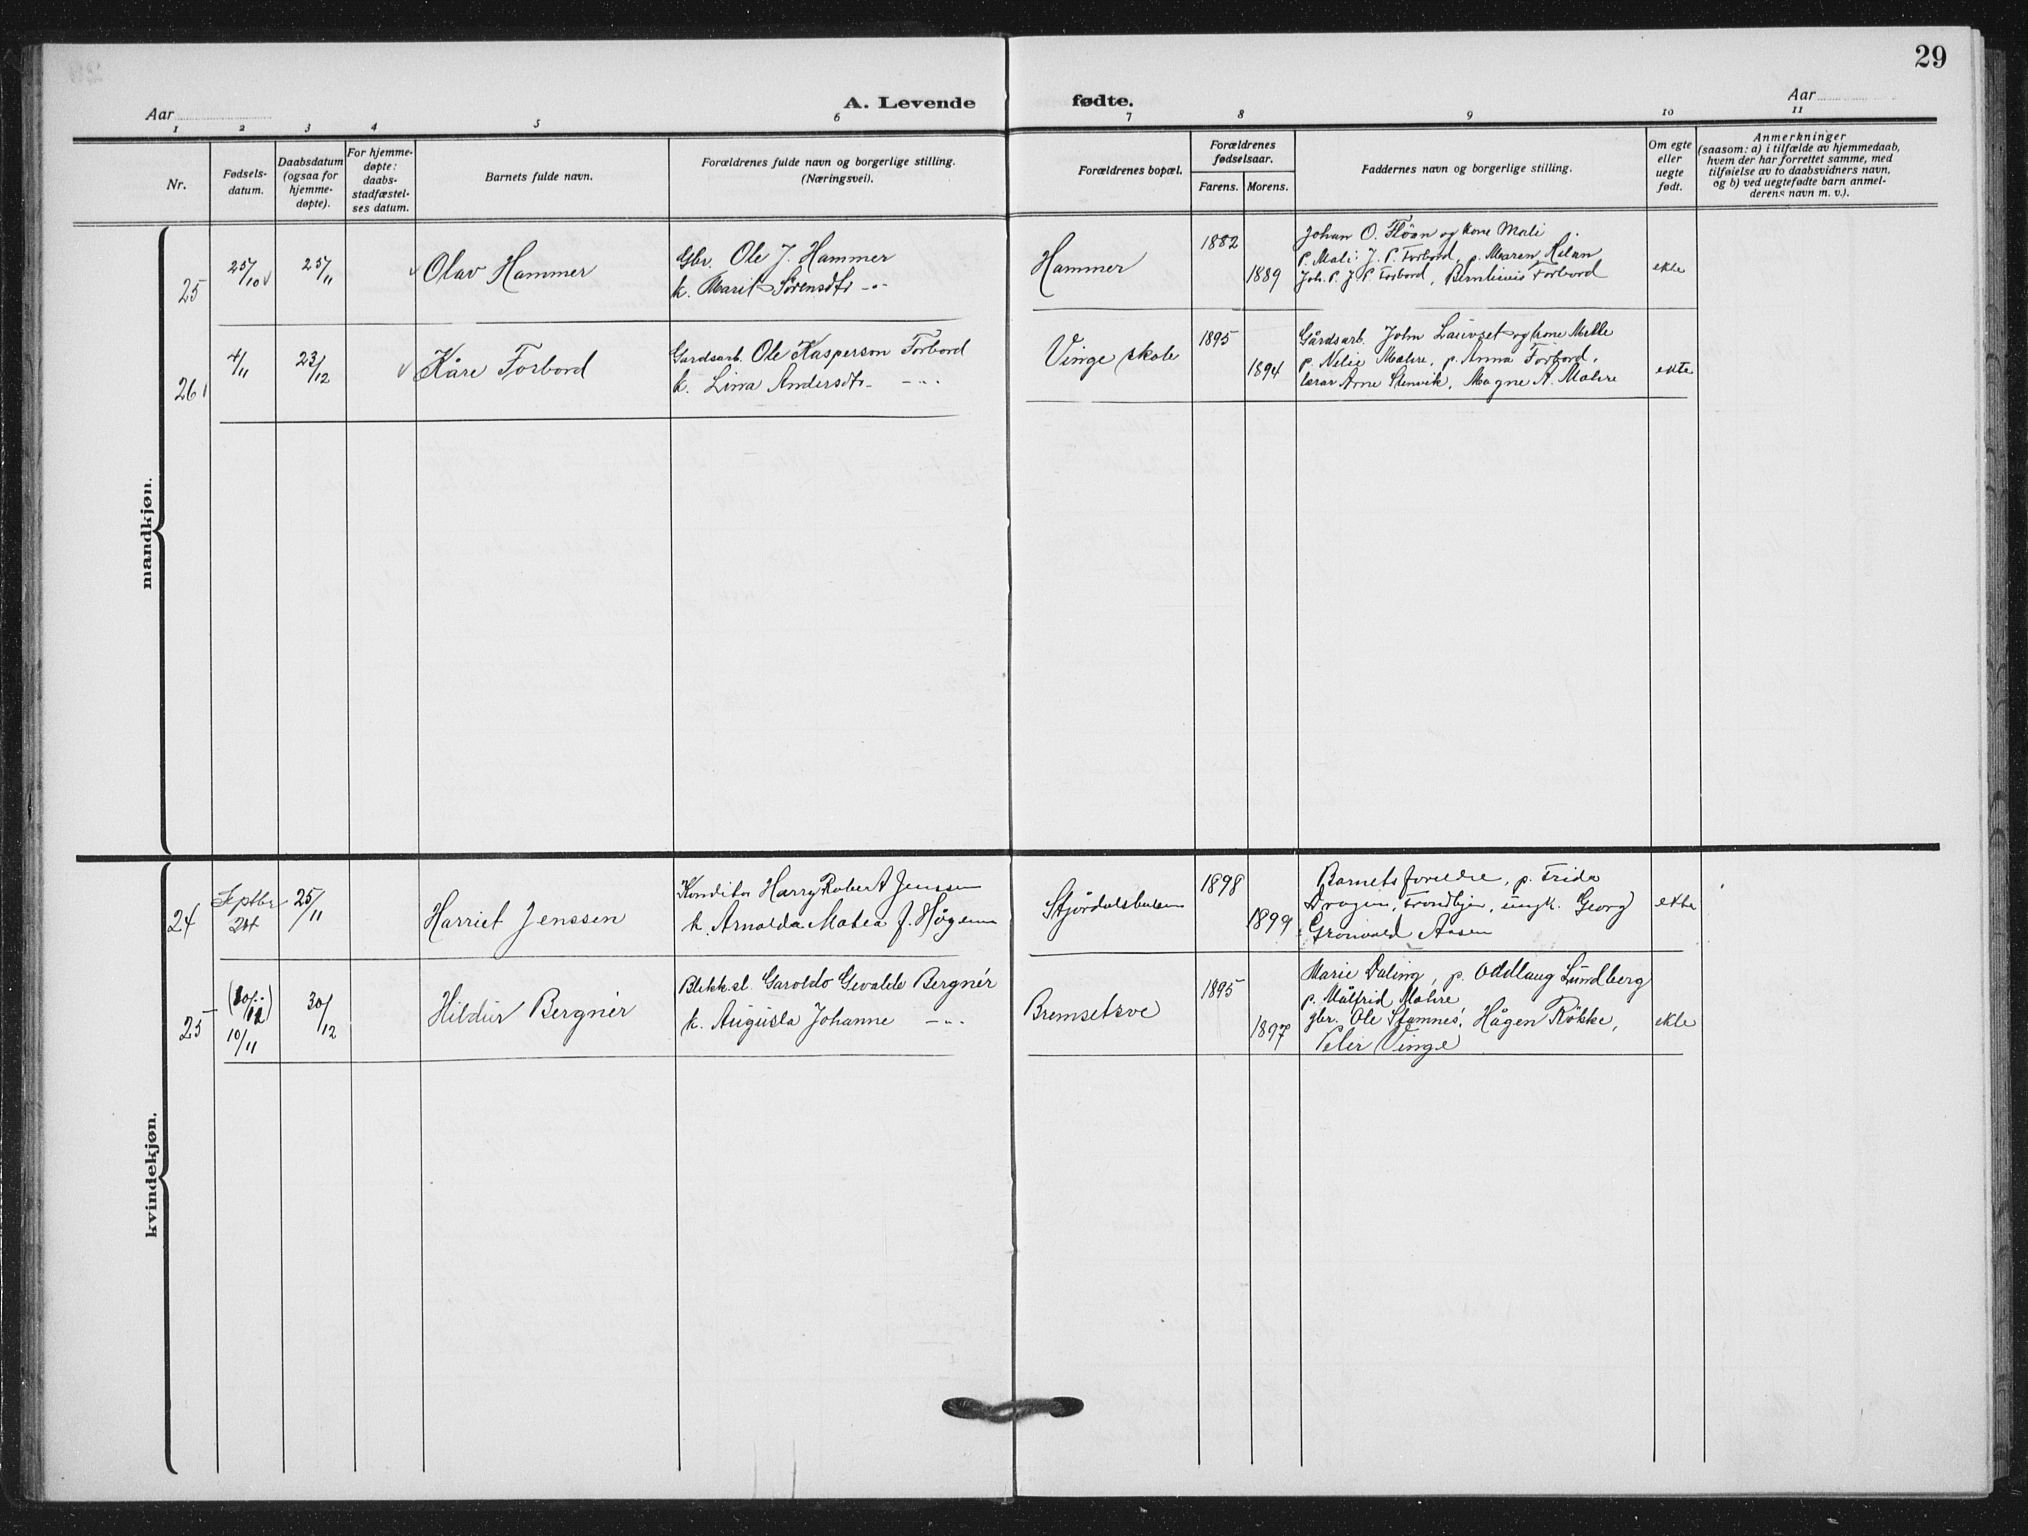 29
A. Levende fødte.
Aar
Aar
1 2 3 4 5 6 7 8 9 10 11
Nr.
Fødsels-
datum.
Daabsdatum
(ogsaa for
hjemme-
døpte).
For hjemme-
døpte:
daabs-
stadfæstel-
ses datum.
Barnets fulde navn.
Forældrenes fulde navn og borgerlige stilling.
(Næringsvei).
Forældrenes bopæl.
Forældrenes
fødselsaar.
Farens. Morens.
Faddernes navn og borgerlige stilling.
Om egte
eller
uegte
født.
Anmerkninger
(saasom: a) i tilfælde av hjemmedaab,
hvem der har forrettet samme, med
tilføielse av to daabsvidners navn,
og b) ved uegtefødte barn anmel-
derens navn m. v.).
mandkjøn.
25
25/10
25/11
Olav Hammer
Gbr. Ole J. Hammer
k. Marit Sørensdtr. -"-
Hammer
1882
1889
Johan O. Fløan og kone Mali
p. Mali J. P. Forbord, p. Maren Hilan
Joh. P. J. P. Forbord, Forbord
ekte
26
4/11
23/12
Kåre Forbord
Gardsarb. Ole Kasperson Forbord
k. Lina Andersdtr. -"-
Vinge skole
1895
1894
Gårdsarb. John Lauvset og kone Mette
p. Nelie Mæhre, p. Anna Forbord,
lærar Arne Stenvik, Magne A. Mæhre
ekte
kvindekjøn.
24
Septbr
24
25/11
Harriet Jenssen
Konditor Harry Robert Jenssen
k. Arnolda Matea f. Hågensen
Stjördalshalsen
1898
1899
Barnets foreldre, p. Frida
Dragen, Trondhjem, ungk. Georg
Grønvold Aasen
ekte
25
(10/12)
10/11
30/12
Hildur Bergnér
Blikksl. Garoldo Gevaldo Bergnér
k. Augusta Johanne -"-
Bremsetsve
1895
1897
Marie Daling, p. Oddlaug Lundberg
p. Målfrid Mæhre
gbr. Ole Stamnes, Hågen Røkke,
Peter Vinge
ekte